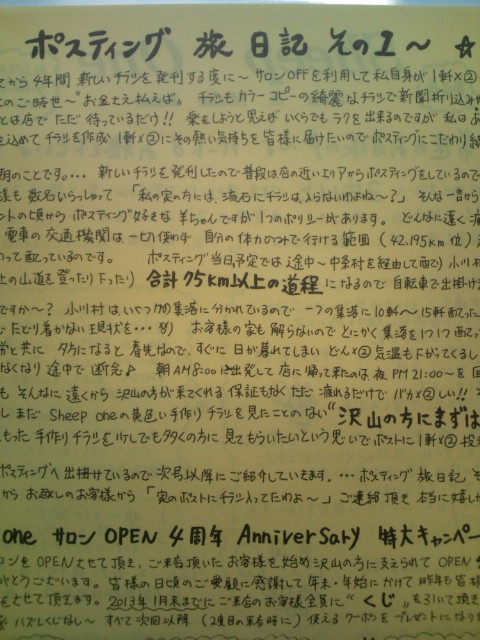 ポスティング 旅 日記 その1〜 ☆
てから 4年間 新しいチラシを 発刊する度に〜 サロンOFFを利用して 私自身が 1軒×2
のご時世〜 "お金さえ払えば。 チラシも カラーコピーの綺麗なチラシで 新聞折り込みや
とは店で ただ 待っているだけ!! 楽をしようと思えば いくらでも ラクを出来るのですが 私は
を込めて チラシを作成 1軒×2 にその熱い気持ちを 皆様に届けたいので ポスティングにこだわり
期のことです。… 新しい チラシを 発刊したので普段は店の近い エリアから ポスティングをしているので
数名いらっしゃって 「私の実の方には、流石にチラシは入らないわよね〜?」 そんな一言から
ントの頃から ポスティング好きな 羊ちゃんですが 1つの ポリシーがあります。 どんなに遠く
電車の交通機関は一切使わず 自分の体力のみで行ける範囲 (42.195km 位)
って配っているのです。 ポスティング 当日予定では 途中〜中条村を経由して 小川村
上の山道を登ったり下ったり) 合計75km以上の道程 になるので 自転車で出掛け
ですか? 小川村は、いくつかの集落に分かれているので 一つの集落に 10軒〜15軒
でたどり着かない現状を… お客様の家も 解らないので とにかく集落を1つ1つ
労と共に 夕方になると 春先なので、すぐに 日が暮れてしまい どん×2 気温も下がってくるし
なくなり 途中で 断念♪ 朝AM8:00に出発して 店に帰って来たのは 夜PM21:00〜
も そんなに 遠くから 沢山の方が来てくれる 保証もなく ただ 疲れるだけで バカ×2しい!!
しまだ Sheep oneの黄色い手作り チラシを見たことのない "沢山の方にまずは
もった 手作りチラシを 多くの方に 見てもらいたいという思いで ポストに 1軒×2
ポスティングへ 出掛けているので 次号以降に ご紹介していきます。… ポスティング 旅日記
から お越しのお客様から 「実のポストにチラシ入ってたわよ〜」 ご連絡頂き 本当に嬉し
one サロン OPEN 4周年 Anniversary 特大キャンペー
ロンを OPENさせて頂き、ご来店頂いた お客様を始め 沢山の方に支えられて OPEN
がとうございます。 皆様の日頃のご愛顧に感謝して 年末・年始にかけて 昨年も
をさせて頂きます。 2013年1月末までにご来店の お客様全員に "くじ" を引いて頂き
ハズレくじなし〜 すべて次回以降 (2度目の来店時に) 使えるクーポンをプレゼント